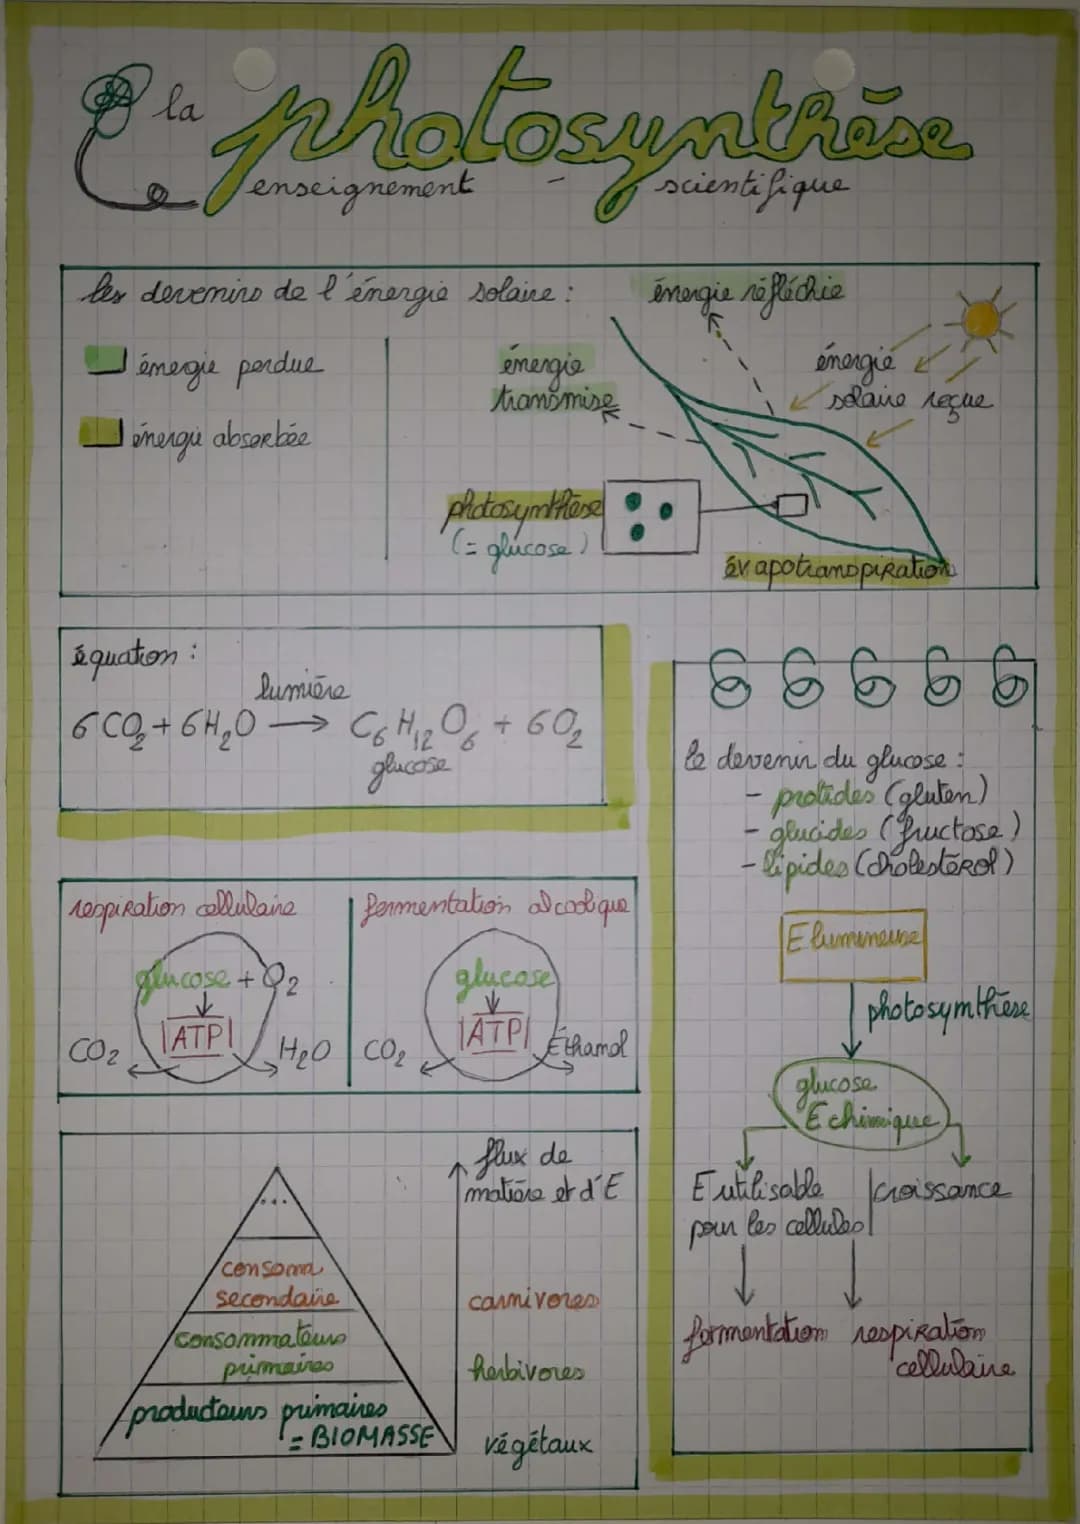 la photosynthèse
enseignement - scientifique
les devenirs de l'énergie solaire :
énergie réfléchie
énergie perdue
énergie absorbée
énergie
transmise
énergie
solaire reçue
photosynthèse
(= glucose)
évapotranspiration
équation :
lumière
6 CO₂ + 6 H₂O → C₆H₁₂O₆ + 6 O₂
glucose
le devenir du glucose :
- protides (gluten)
- glucides (fructose)
- lipides (cholestérol)
E lumineuse
photosynthèse
glucose
E chimique
E utilisable
pour les cellules
croissance
fermentation
respiration
cellulaire
respiration cellulaire
glucose + O₂
ATP
CO₂
H₂O
fermentation alcoolique
glucose
ATP
CO₂
Éthanol
flux de
matière et d'E
...
consoma
secondaire
carnivores
consommateurs
primaires
herbivores
producteurs primaires
= BIOMASSE
végétaux